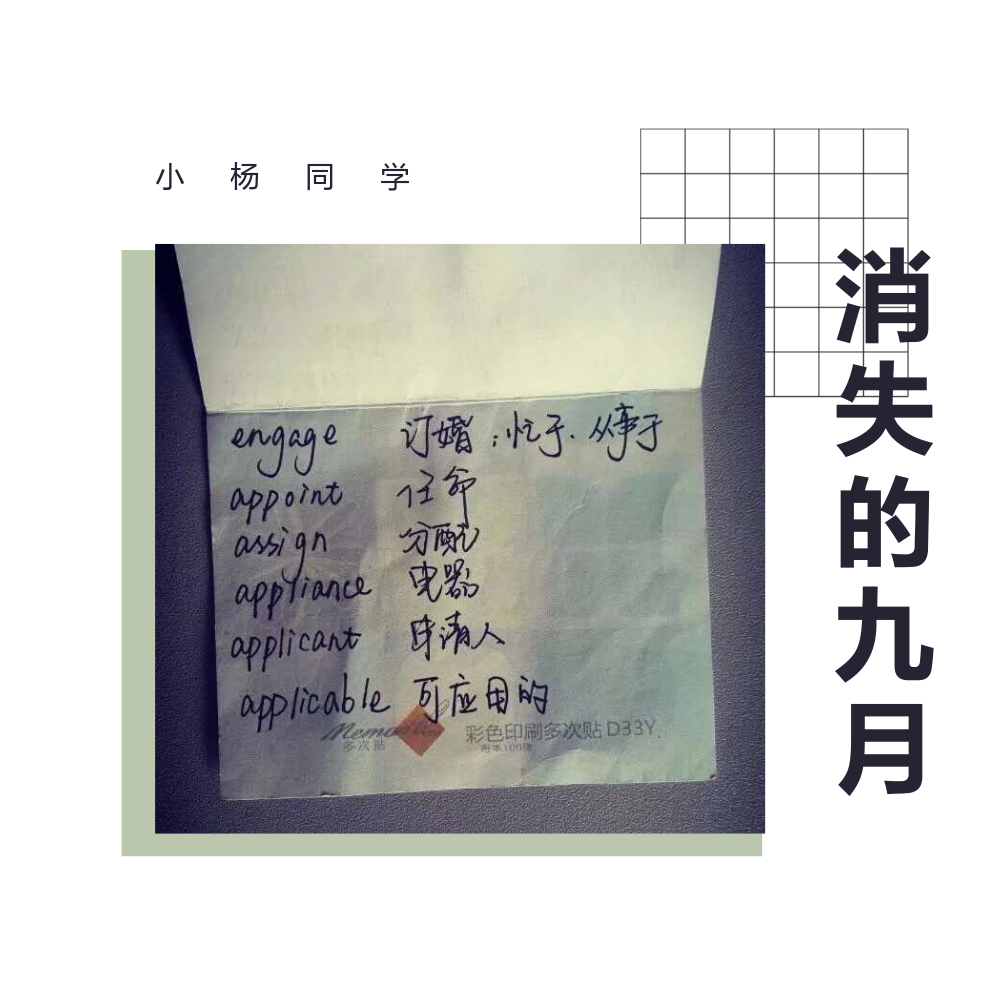 小杨同学
消失的九月
engage 订婚；忙于．从事于
appoint 任命
assign 分配
appliance 电器
applicant 申请人
applicable 可应用的
彩色印刷多次贴 D33Y
多次贴 每本100张